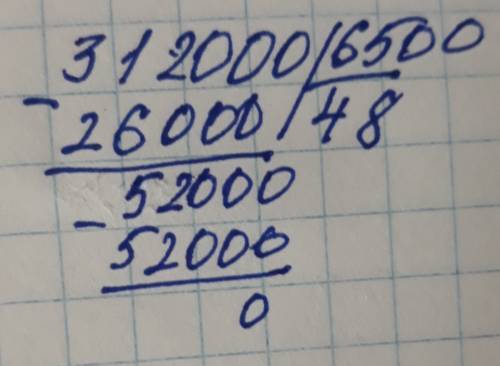 312000/6500
- 26000/48
- 52000
52000
0